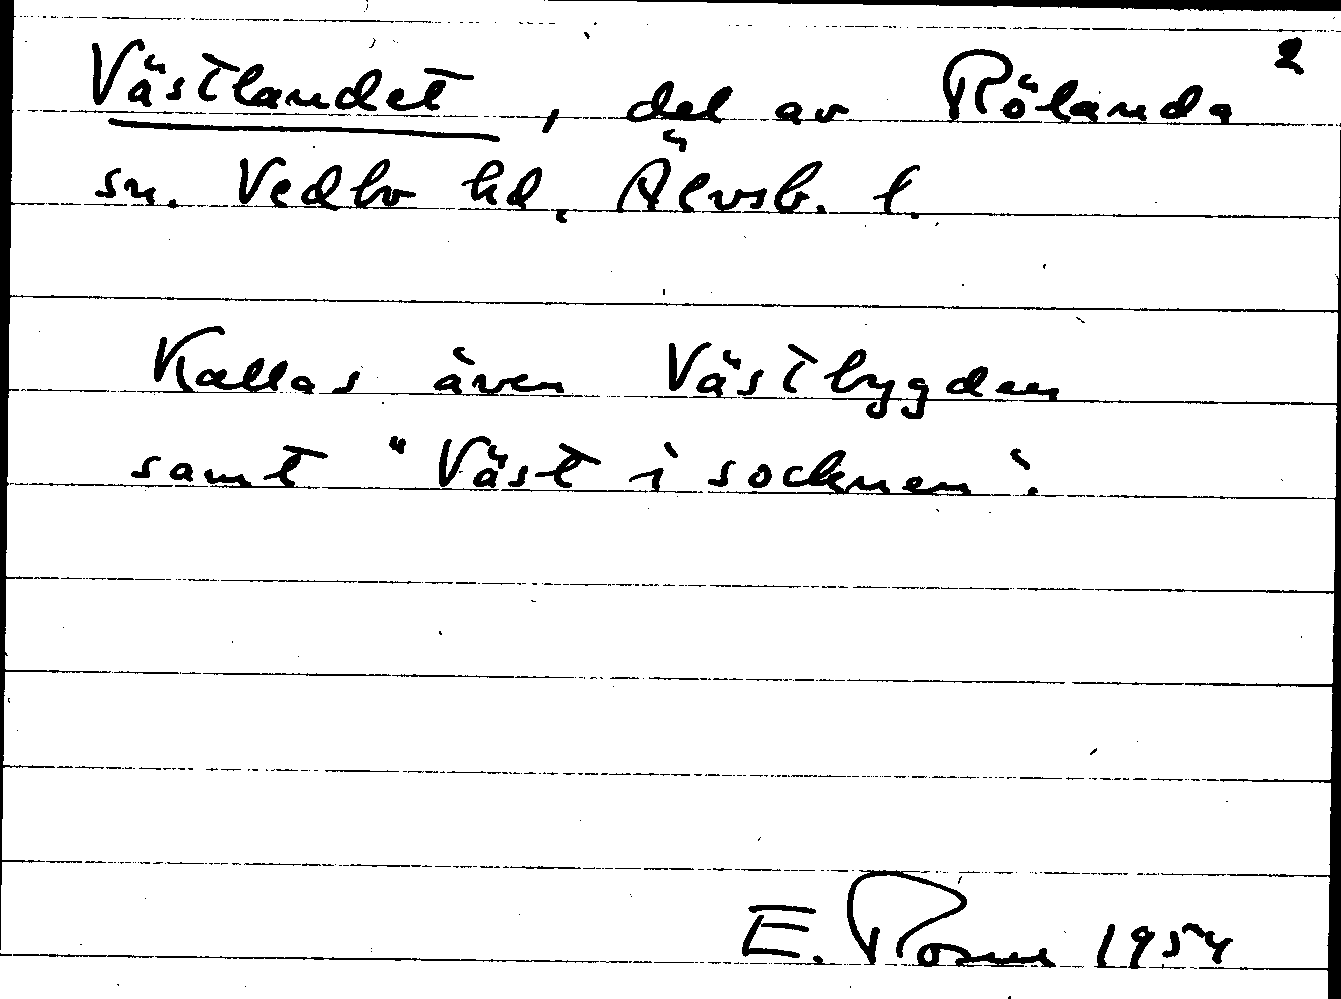 2
Västlandet, del av Rölanda
sn. Vedbo hd, Älvsb. l.
Kallas även Västbygden
samt "Väst i socknen".
E. 1954